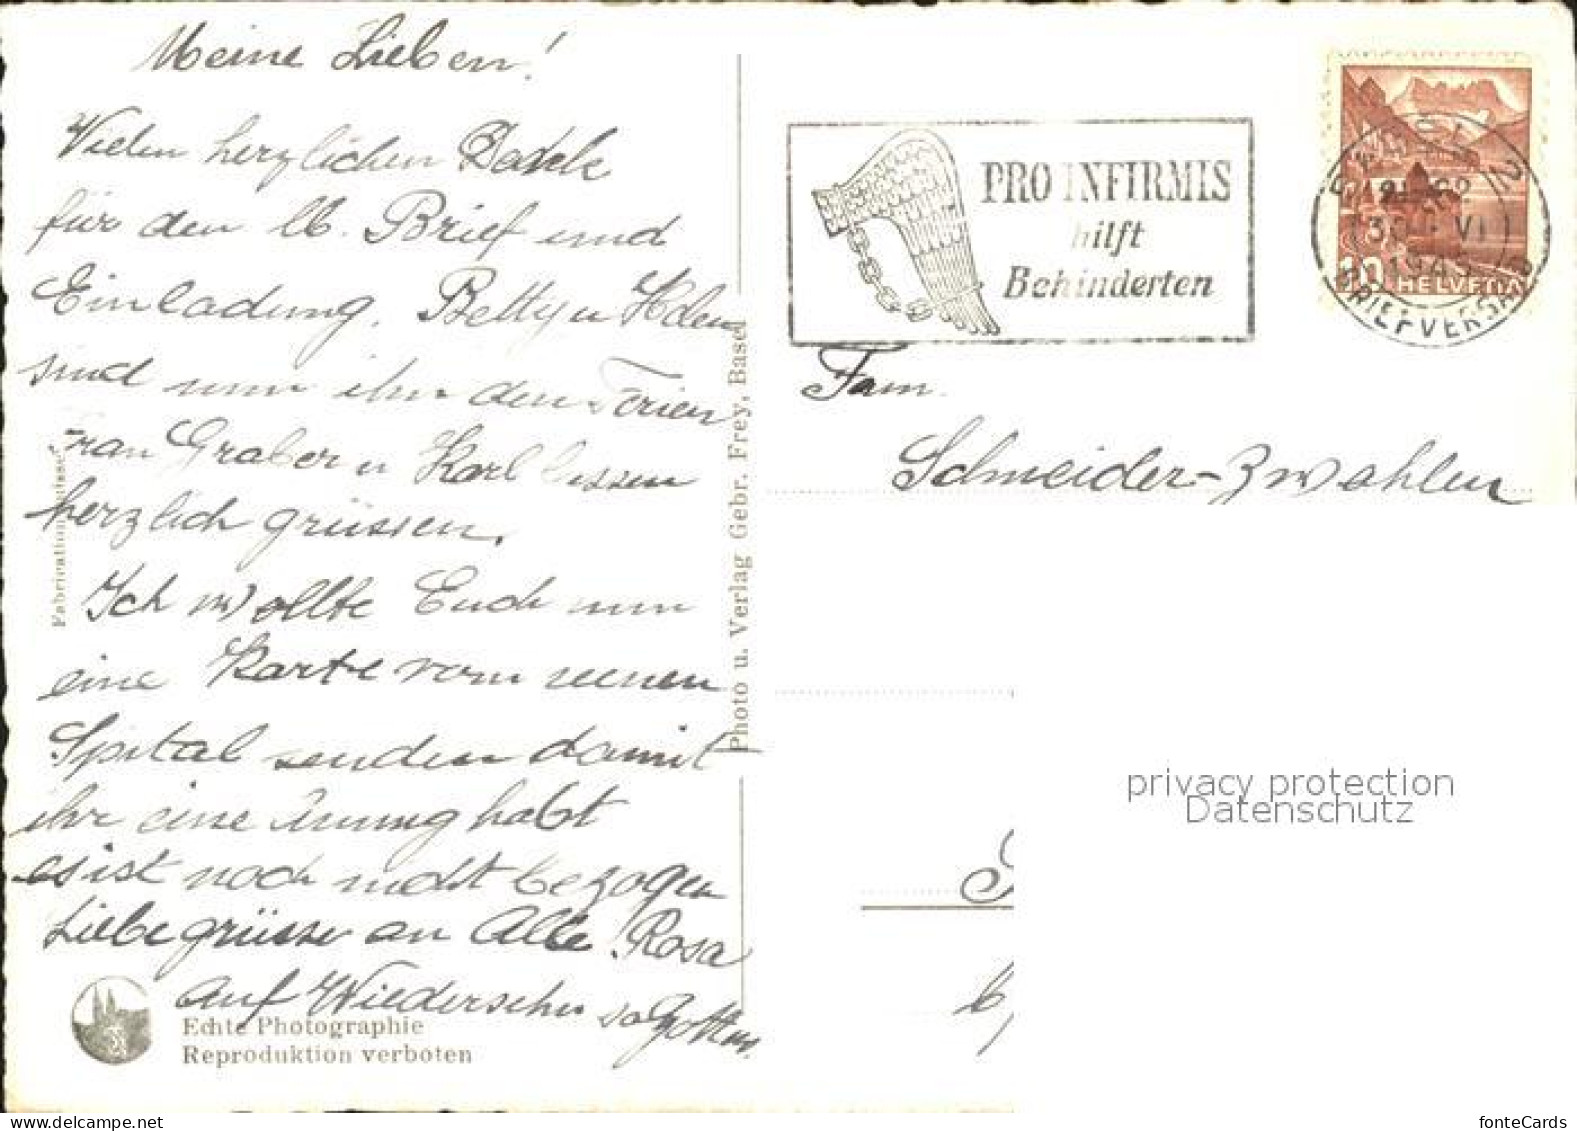 Meine Lieben!
Vielen herzlichen Dank
für den lb. Brief und
Einladung. Betty u Helen
sind nun in den Ferien
Frau Graber u Karl lassen
herzlich grüssen.
Ich wollte Euch nun
eine Karte vom neuen
Spital senden damit
ihr eine Anung habt
es ist noch nicht bezogen
Liebe grüsse an Alle. Rosa
Auf Wiedersehn so Gott
Echte Photographie
Reproduktion verboten
Photo u. Verlag Gebr. Frey, Basel
PRO INFIRMIS
hilft
Behinderten
BASEL 2
30. VI
BRIEFVERSAND
10 HELVETIA
Fam.
Schneider-Zwahlen
privacy protection
Datenschutz
fonteCards